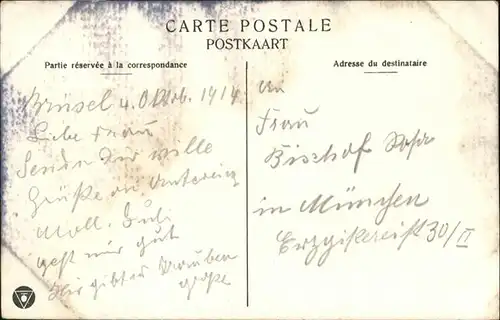 CARTE POSTALE
POSTKAART
Partie réservée à la correspondance
Adresse du destinataire
Brüssel 4. Oktob. 1914
Liebe Frau
Sende Dir viele
Grüße
geht mir gut
Hier gibt es Trauben
große
An
Frau
Bischof
in München
Erzgießereistr 30/II